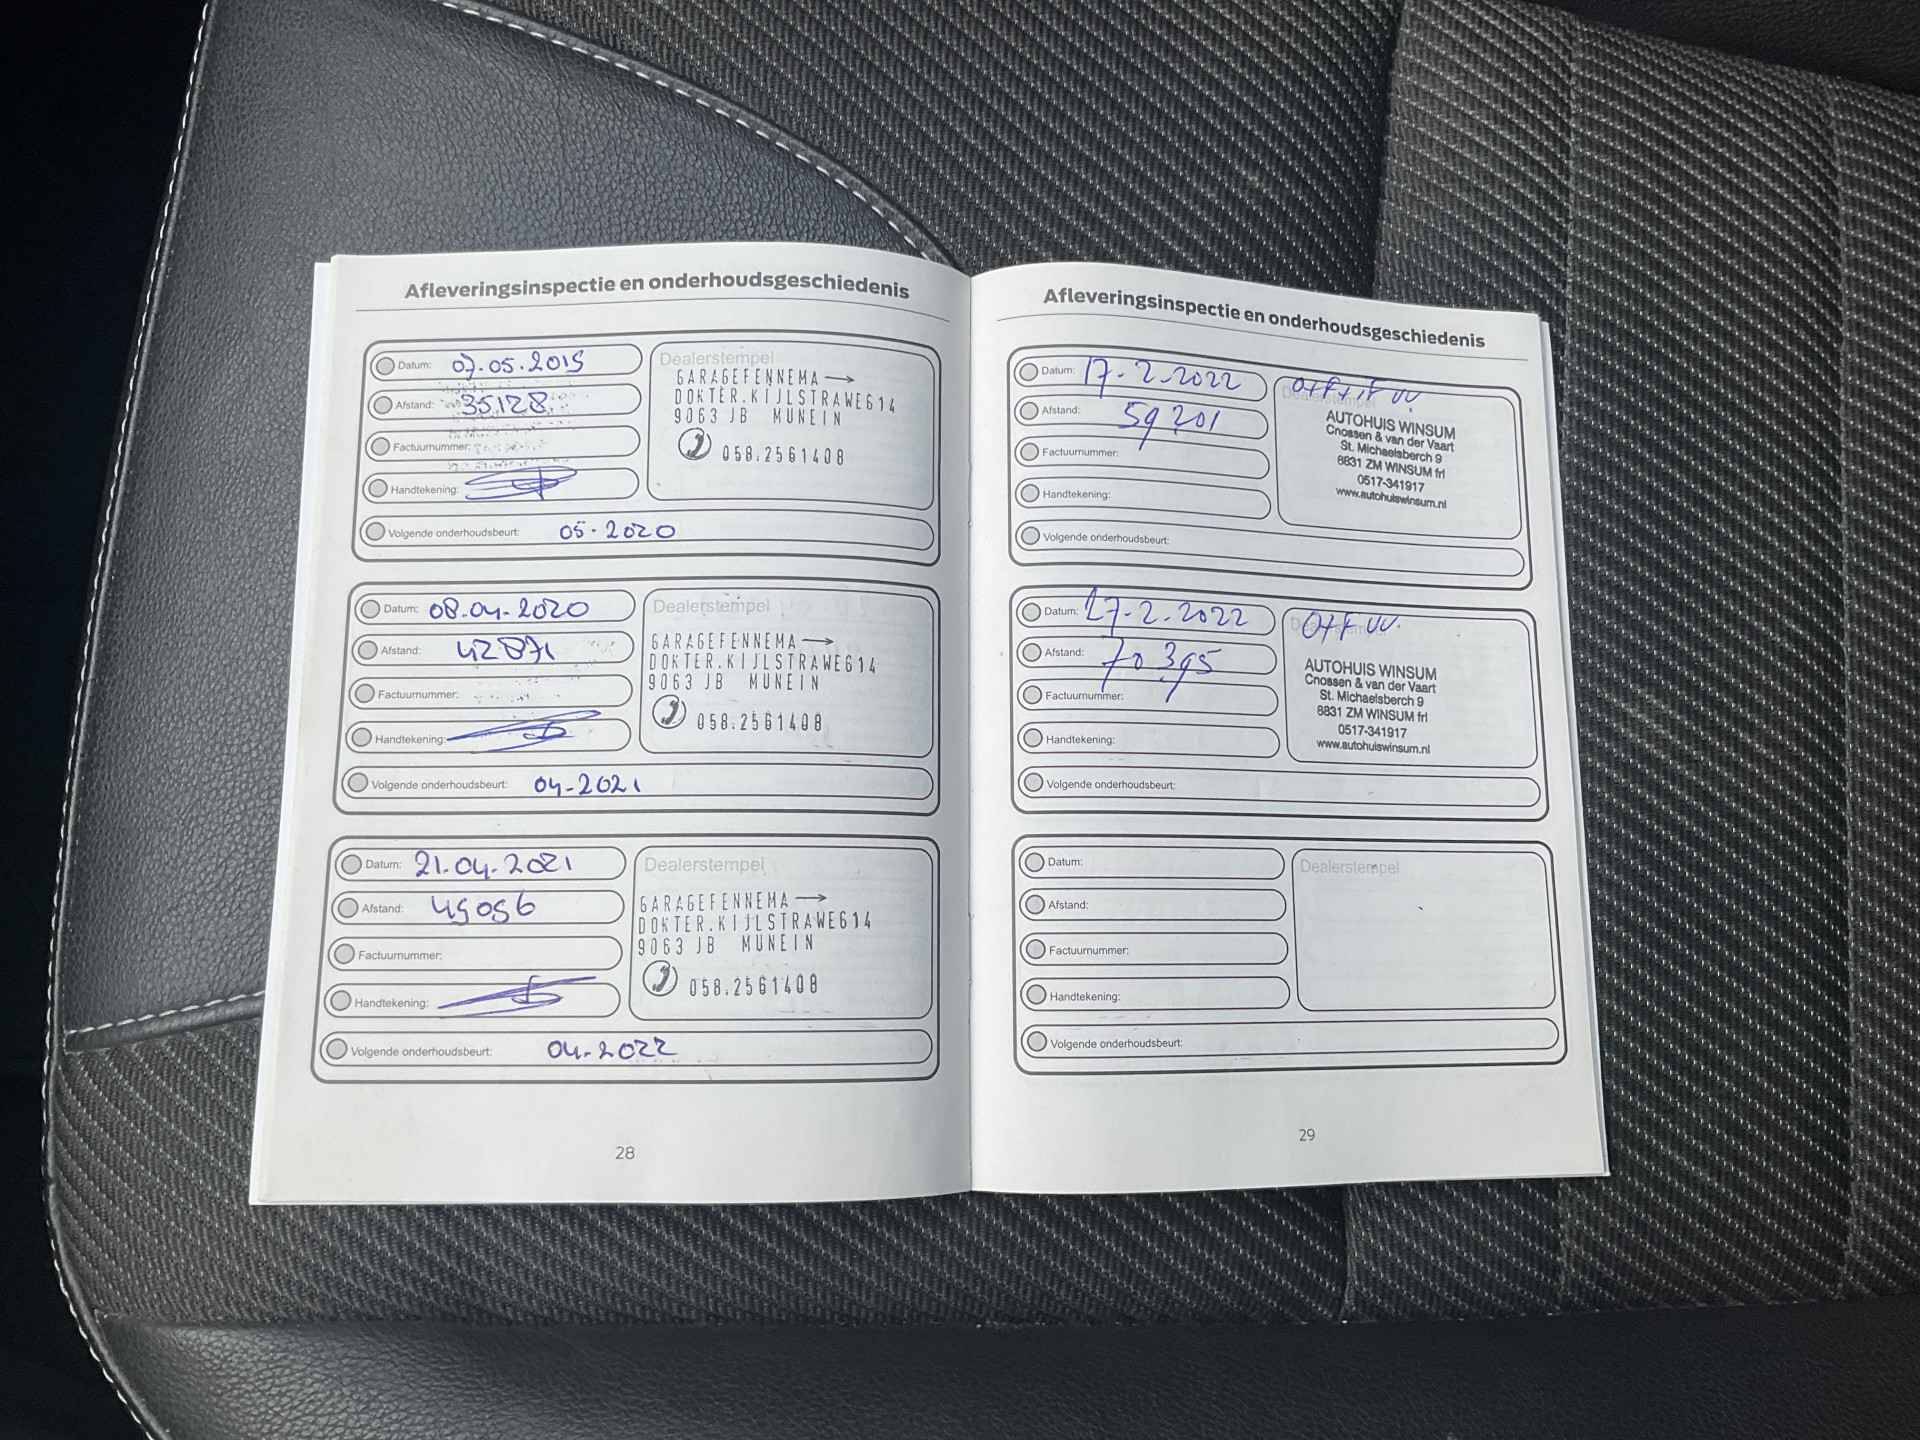 Afleveringsinspectie en onderhoudsgeschiedenis
Datum: 07.05.2019
Afstand: 35128
Factuurnummer:
Handtekening:
Volgende onderhoudsbeurt: 05-2020
Dealerstempel
GARAGEFENNEMA →
DOKTER.KIJLSTRAWEG14
9063 JB MUNEIN
058.2561408
Datum: 08.04.2020
Afstand: 42871
Factuurnummer:
Handtekening:
Volgende onderhoudsbeurt: 04-2021
Dealerstempel
GARAGEFENNEMA →
DOKTER.KIJLSTRAWEG14
9063 JB MUNEIN
058.2561408
Datum: 21.04.2021
Afstand: 49096
Factuurnummer:
Handtekening:
Volgende onderhoudsbeurt: 04-2022
Dealerstempel
GARAGEFENNEMA →
DOKTER.KIJLSTRAWEG14
9063 JB MUNEIN
058.2561408
28
Afleveringsinspectie en onderhoudsgeschiedenis
Datum: 17-2-2022
Afstand: 59201
Factuurnummer:
Handtekening:
Volgende onderhoudsbeurt:
Dealerstempel
AUTOHUIS WINSUM
Cnossen & van der Vaart
St. Michaelsberch 9
8831 ZM WINSUM frl
0517-341917
www.autohuiswinsum.nl
Datum: 27-2-2022
Afstand: 70395
Factuurnummer:
Handtekening:
Volgende onderhoudsbeurt:
AUTOHUIS WINSUM
Cnossen & van der Vaart
St. Michaelsberch 9
8831 ZM WINSUM frl
0517-341917
www.autohuiswinsum.nl
Datum:
Afstand:
Factuurnummer:
Handtekening:
Volgende onderhoudsbeurt:
Dealerstempel
29